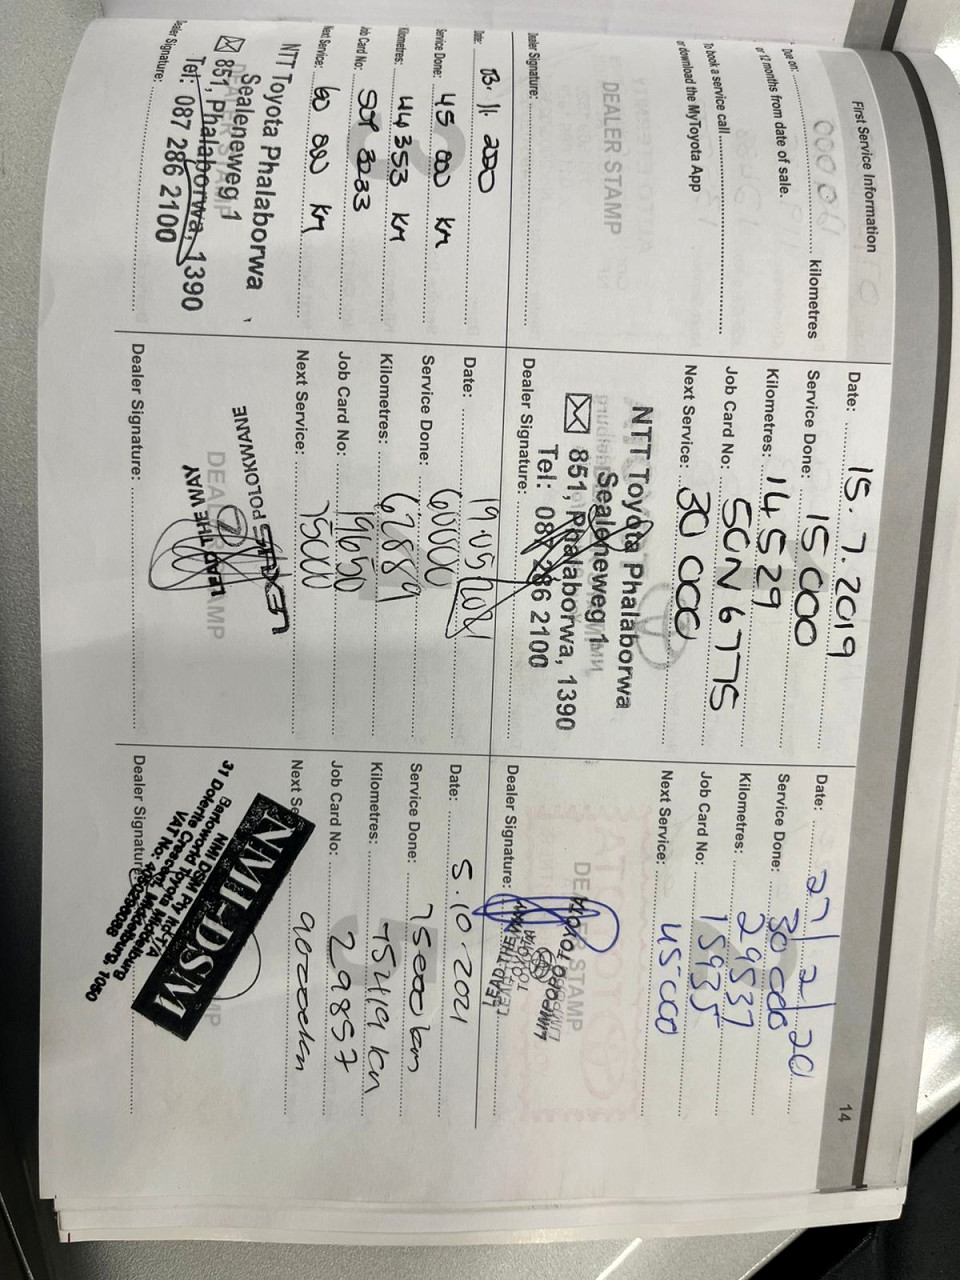 First Service Information
14
Due on: kilometres
or 12 months from date of sale.
To book a service call
or download the MyToyota App
DEALER STAMP
Dealer Signature:
Date: 15.7.2019
Service Done: 15 000
Kilometres: 14 529
Job Card No: SGN 6775
Next Service: 30 000
NTT Toyota Phalaborwa
Sealeneweg 1
851, Phalaborwa, 1390
Tel: 087 286 2100
Dealer Signature:
Date: 27/2/20
Service Done: 30 000
Kilometres: 29537
Job Card No: 15935
Next Service: 45 000
DEALER STAMP
LIMPOPO TOYOTA
LEAD THE WAY
Dealer Signature:
Date: 13.11.2020
Service Done: 45 000 km
Kilometres: 44 353 km
Job Card No: 3233
Next Service: 60 000 km
NTT Toyota Phalaborwa
Sealeneweg 1
851, Phalaborwa, 1390
Tel: 087 286 2100
Dealer Signature:
Date: 19/05/2021
Service Done: 60000
Kilometres: 62889
Job Card No: 19650
Next Service: 75000
POLOKWANE
DEALER STAMP
LEAD THE WAY
Dealer Signature:
Date: 5.10.2021
Service Done: 75000km
Kilometres: 75419 km
Job Card No: 29857
Next Se 90000km
NMI-DSM
NMI DSM Pty Ltd T/A
Barloworld Toyota Middelburg
31 Dolerite Crescent, Middelburg, 1050
VAT No:
Dealer Signature: